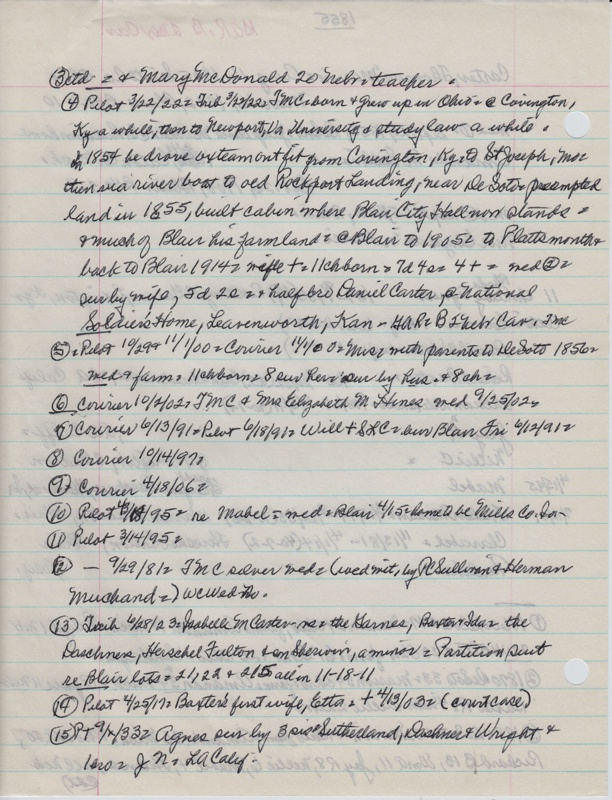 ③ctd = & Mary McDonald 20 Nebr = teacher =
④ Pilot 3/22/22 = Trib 3/22/22 = TMC = born & grew up in Ohio = @ Covington,
Ky a while, then to Newport, Va University & study law a while =
in 1854 he drove ox team outfit from Covington, Ky = to St Joseph, Mo =
then via river boat to old Rockport Landing, near De Soto = preempted
land in 1855, built cabin where Blair City Hall now stands =
& much of Blair his farm land = @ Blair to 1905 = to Plattsmouth &
back to Blair 1914 = wife + = 11 ch born = 7d 4s = 4 + = med @ =
sur by wife, 5d 2s = & half bro Daniel Carter, @ National
Soldier's Home, Leavenworth, Kan - GAR = B 1 Nebr Cav. TMC
⑤ = Pilot 10/29 & 11/1/00 = Courier 11/1/00 = Mrs = with parents to De Soto 1856 =
med & farm = 11 ch born = 8 sur sur by hus. & 8 ch =
⑥ Courier 10/2/02 = TMC & Mrs Elizabeth M Hines wed 9/25/02 =
⑦ Courier 6/13/91 = Pilot 6/18/91 = Will + SLC = bur Blair Fri 6/12/91 =
⑧ Courier 10/14/97 =
⑨ Courier 4/18/06 =
⑩ Pilot 4/18/95 = re Mabel = med = Blair 4/15 = home to be Mills Co. Ia =
⑪ Pilot 3/14/95 =
⑫ — 9/29/81 = TMC silver wed = (wed wit, by PC Sullivan & Herman
Muchand =) WCWed No.
⑬ Trib 6/28/23 = Isabella M Carter - vs = the Garnes, Baxter & Ida = the
Daschners, Herschel Fulton & son Sherwin, a minor = Partition suit
re Blair lots = 21, 22 & 215 all in 11-18-11
⑭ Pilot 4/25/17 = Baxter's first wife, Etta = + 4/13/03 = (court case)
⑮ PT 9/ /33 = Agnes sur by 3 sis = Sutherland, Daschner & Wright &
1 bro = J N = LA Calif.